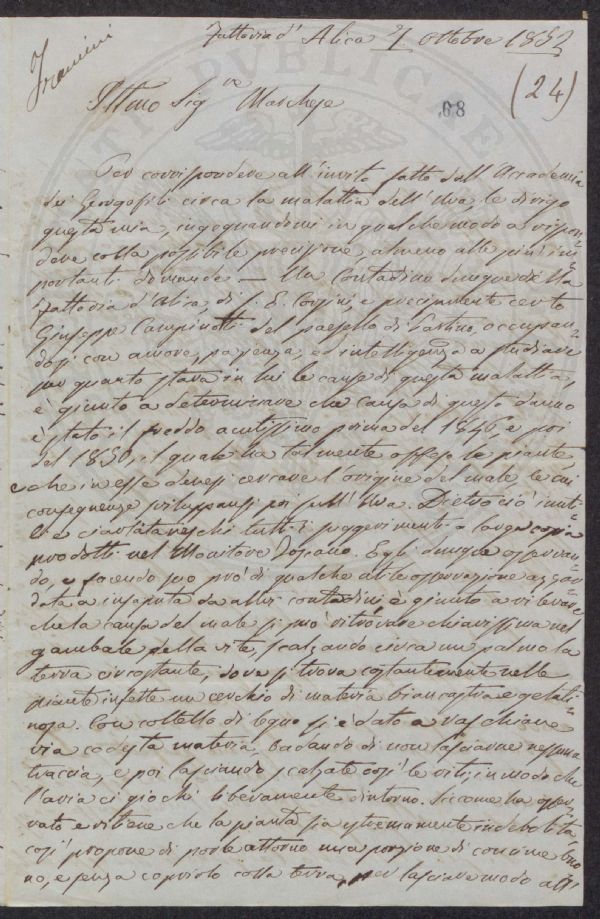 Framini
Fattoria d'Alica 7. Ottobre 1852
(24)
Illmo Sigre Marchese
08
Per corrispondere all'invito fatto dall'Accademia
dei Georgofili circa la malattia dell'Uva, le dirigo
questa mia, ingegnandomi in qualche modo a rispon=
dere colla possibile precisione almeno alle più im=
portanti domande — Un Contadino dunque della
fattoria d'Alica, di S. E. Corsini, e precisamente certo
Giuseppe Campinotti del paesetto di Partino, occupan=
dosi con amore, pazienza, ed intelligenza a studiare
per quanto stava in lui le cause di questa malattia,
è giunto a determinare che causa di questo danno
è stato il freddo acutissimo prima del 1846, e poi
del 1850, il quale ha talmente offeso le piante,
che in esse devesi cercare l'origine del male, le cui
conseguenze sviluppansi poi sull'Uva. Dietro ciò inuti=
li e ciarlataneschi tutti i suggerimenti a larga copia
prodotti nel Monitore Toscano. Egli dunque osservan=
do, e facendo suo prò di qualche utile osservazione azzar=
data a insaputa da altri contadini è giunto a rilevare
che la causa del male si può ritrovare chiarissima nel
gambale della vite, scalzando circa un palmo la
terra circostante, dove si trova costantemente nelle
piante infette un cerchio di materia biancastra e gelati=
nosa. Con coltello di legno si è dato a raschiare
via codesta materia, badando di non lasciarne nessuna
traccia, e poi lasciando scalzate così le viti, in modo che
l'aria ci giochi liberamente d'intorno. Siccome ha osser=
vato e ritiene che la pianta sia estremamente indebolita,
così propone di porle attorno una porzione di concime buo=
no, e senza coprirlo colla terra, per lasciare modo all'